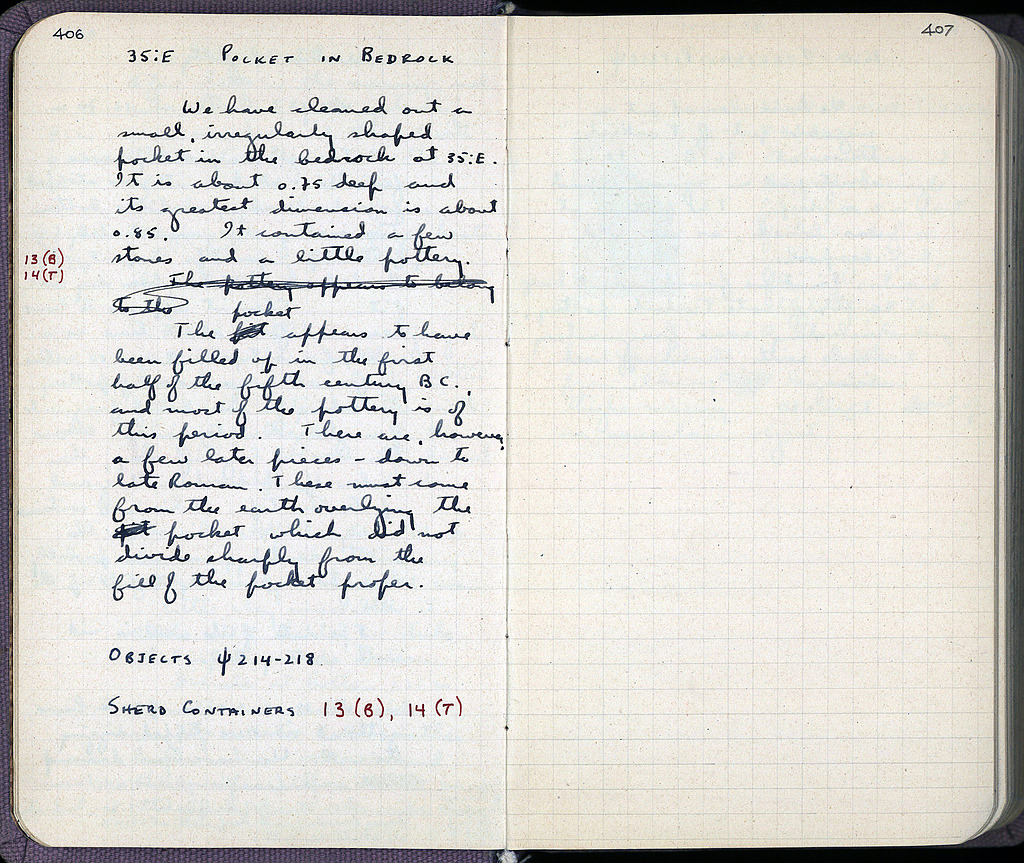 406
35:E POCKET IN BEDROCK
We have cleaned out a
small, irregularly shaped
pocket in the bedrock at 35:E.
It is about 0.75 deep and
its greatest dimension is about
0.85. It contained a few
13 (B)
stones and a little pottery.
14 (T)
The pottery appears to belong
to the
pocket
The pit appears to have
been filled up in the first
half of the fifth century B C.,
and most of the pottery is of
this period. There are, however,
a few later pieces - down to
late Roman. These must come
from the earth overlying the
pit pocket which did not
divide sharply from the
fill of the pocket proper.
OBJECTS ψ 214-218
SHERD CONTAINERS 13 (B), 14 (T)
407